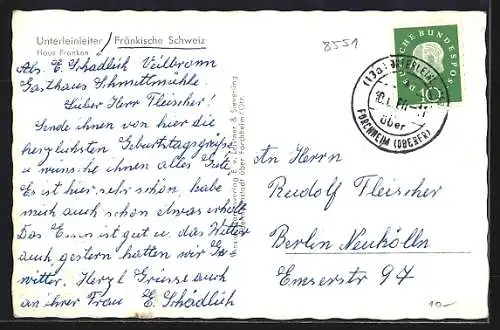 Unterleinleiter / Fränkische Schweiz
Haus Franken
8551
Abs. E. Schädlich Veilbronn
Gasthaus Schmittmühle.
Lieber Herr Fleischer!
Sende ihnen von hier die
herzlichsten Geburtstagsgrüße
u wünsche ihnen alles Gute
Es ist hier sehr schön, habe
mich auch schon etwas erholt
Das Essen ist gut u. das Wetter
auch, gestern hatten wir Ge-
witter. Herzl Grüsse auch
an ihrer Frau E. Schädlich
über Forchheim/Ofr.
DEUTSCHE BUNDESPOST
10
(13a) UNTERLEINL
über
FORCHHEIM (OBERFR)
An Herrn
Rudolf Fleischer
Berlin Neukölln
Emserstr 97
10-